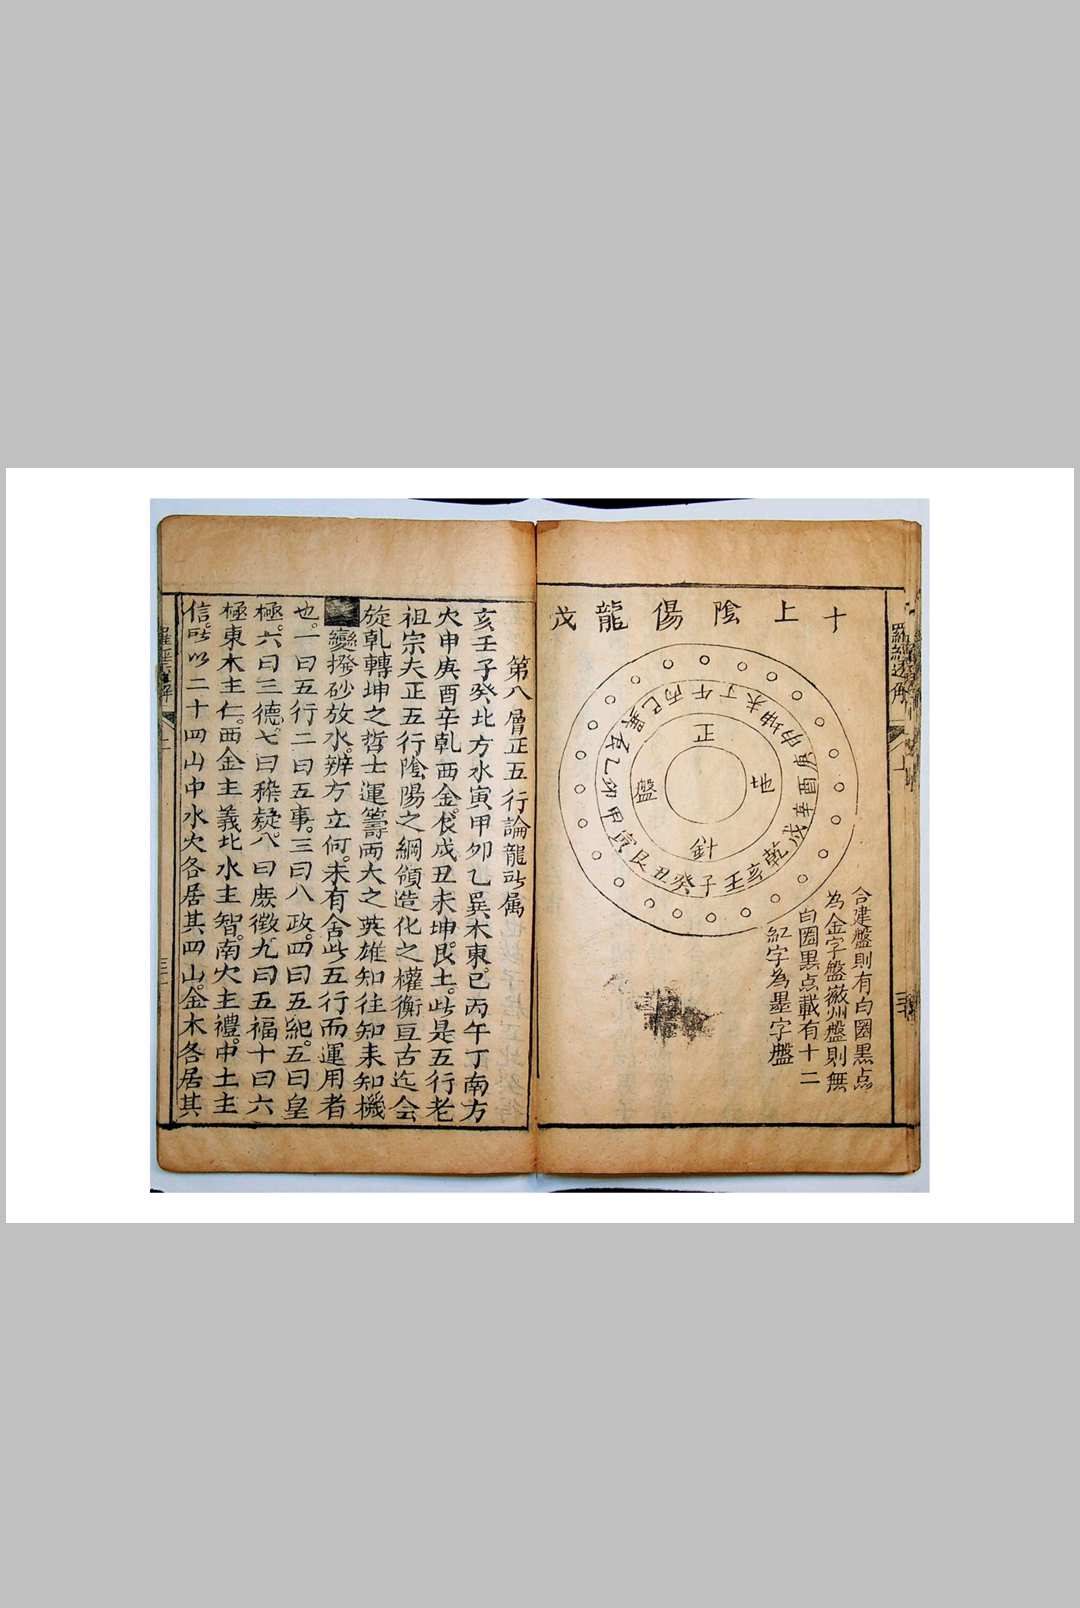 羅經透解
十上陰陽龍茂
正
地
針
盤
壬子癸丑艮寅甲卯乙辰巽巳丙午丁未坤申庚酉辛戌乾亥
合建盤則有白圈黒点
為金字盤徽州盤則無
白圈黒点載有十二
紅字為墨字盤
第八層正五行論龍所属
亥壬子癸北方水寅甲卯乙巽木東巳丙午丁南方
火申庚酉辛乹西金辰戌丑未坤艮土此是五行老
祖宗夫正五行陰陽之綱領造化之權衡亘古迄今
旋乹轉坤之哲士運籌両大之英雄知往知来知機
變撥砂放水辨方立何未有舍此五行而運用者
也一曰五行二曰五事三曰八政四曰五紀五曰皇
極六曰三德七曰稽疑八曰庶徴九曰五福十曰六
極東木主仁西金主義北水主智南火主禮中土主
信所以二十四山中水火各居其四山金木各居其